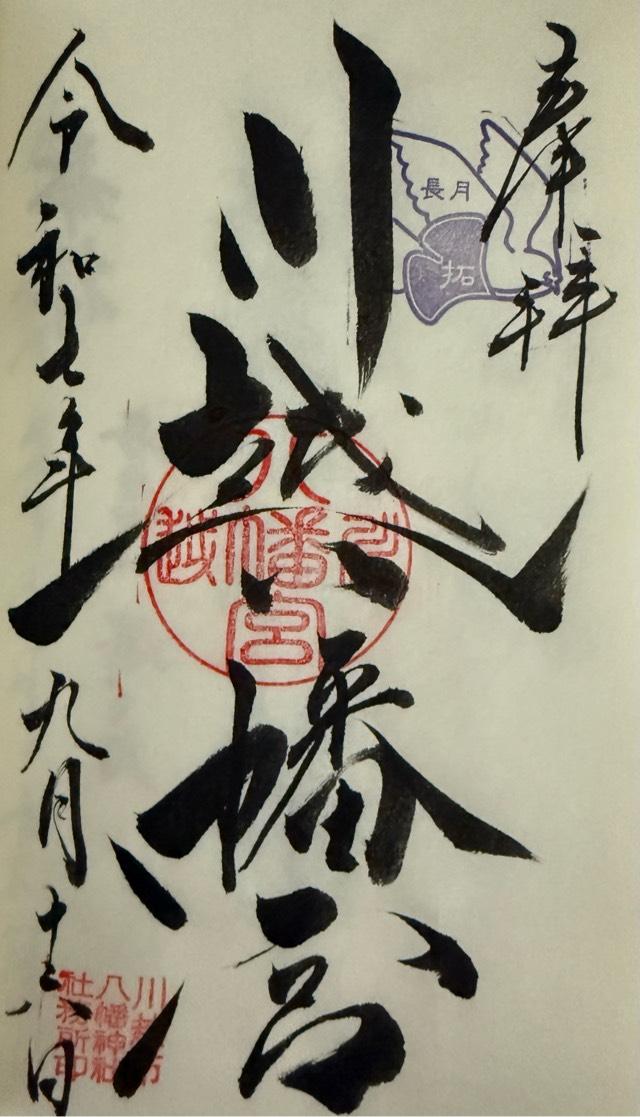 奉拝
長月
拓
川越八幡宮
川越八幡宮
令和七年九月十六日
川越市
八幡神社
社務所印